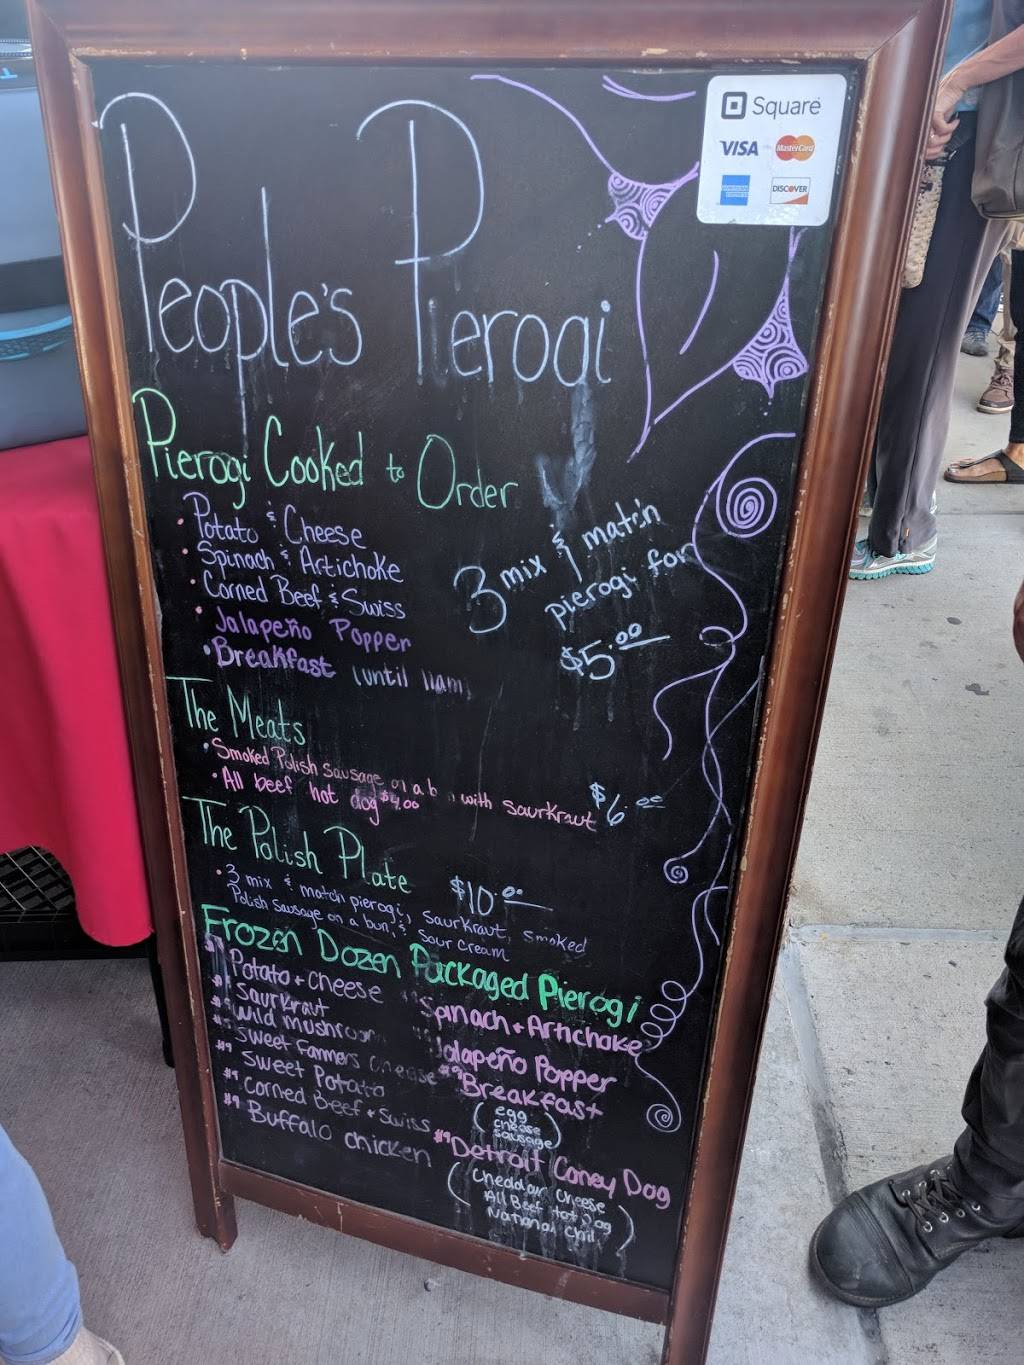 Square
VISA MasterCard
DISCOVER
People's Pierogi
Pierogi Cooked to Order
• Potato & Cheese
• Spinach & Artichoke
• Corned Beef & Swiss
• Jalapeño Popper
• Breakfast (until 11am)
3 mix & match
pierogi for
$5.00
The Meats
• Smoked Polish Sausage on a bun with Saurkraut $6.00
• All beef hot dog $4.00
The Polish Plate $10.00
• 3 mix & match pierogi, Saurkraut, Smoked
Polish Sausage on a bun, & Sour Cream
Frozen Dozen Packaged Pierogi
Potato + Cheese
Saurkraut
Wild Mushroom
Sweet Farmers Cheese
$9 Sweet Potato
$9 Corned Beef + Swiss
$9 Buffalo chicken
Spinach + Artichoke
Jalapeño Popper
$9 Breakfast
(egg
cheese
sausage)
$9 Detroit Coney Dog
(Cheddar Cheese
All Beef Hot Dog
National Chili)